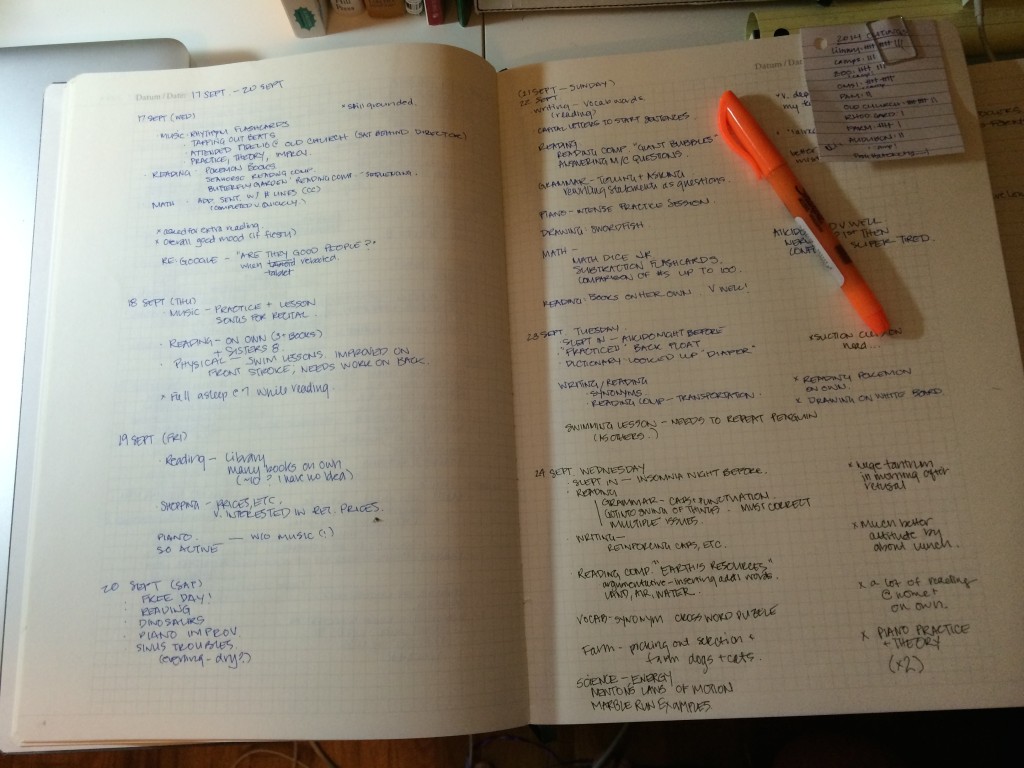 Datum / Date: 17 SEPT - 20 SEPT
17 SEPT (WED)
* still grounded.
· MUSIC - RHYTHYM FLASHCARDS
TAPPING OUT BEATS
ATTENDED FIDELIO @ OLD CHURCH (SAT BEHIND DIRECTOR)
PRACTICE, THEORY, IMPROV.
· READING - POKEMON BOOKS.
SEAHORSE READING COMP.
BUTTERFLY GARDEN READING COMP. SEQUENCING.
MATH - ADD. SENT. W/ # LINES (CC)
(COMPLETED V. QUICKLY!)
* asked for extra reading.
* Overall good mood (if feisty)
RE: GOOGLE - "ARE THEY GOOD PEOPLE?"
when reloaded.
tablet
18 SEPT (THU)
· MUSIC - PRACTICE + LESSON
SONGS FOR RECITAL.
· READING - ON OWN (3+ BOOKS)
+ SISTERS 8.
· PHYSICAL - SWIM LESSONS. IMPROVED ON
FRONT STROKE, NEEDS WORK ON BACK.
* Full asleep @ 7 while reading.
19 SEPT (FRI)
· Reading - Library
many books on own
(~10? I have no idea)
· SHOPPING - PRICES, ETC.
V. INTERESTED IN REL. PRICES.
PIANO - W/O MUSIC (!)
SO ACTIVE
20 SEPT (SAT)
· FREE DAY!
· READING
· DINOSAURS
· PIANO IMPROV.
SINUS TROUBLES
(evening - dry?)
Datum / Dat
(21 SEPT - SUNDAY)
22 SEPT
writing - vocab words
(reading?)
CAPITAL LETTERS TO START SENTENCES.
READING
READING COMP "GIANT BUBBLES"
ANSWERING M/C QUESTIONS.
GRAMMAR - TELLING + ASKING
rewriting statements as questions.
PIANO - INTENSE PRACTICE SESSION
DRAWING - SWORDFISH
MATH -
MATH DICE JR
SUBTRACTION FLASHCARDS.
COMPARISON OF #S UP TO 100.
READING - BOOKS ON HER OWN V WELL!
AIKIDO V WELL
1ST THEN
SUPER TIRED.
23 SEPT. TUESDAY
· SLEPT IN - AIKIDO NIGHT BEFORE
· "PRACTICED" BACK FLOAT
· DICTIONARY - LOOKED UP "DIAPER"
* SUCTION
head...
WRITING/READING
· SYNONYMS
· READING COMP - TRANSPORTATION
* READING POKEMON
ON OWN.
* DRAWING ON WHITE BOARD.
SWIMMING LESSON - NEEDS TO REPEAT PENGUIN
(AS OTHERS.)
24 SEPT. WEDNESDAY
· SLEPT IN - INSOMNIA NIGHT BEFORE.
· READING
GRAMMAR - CAPS + PUNCTUATION.
GET INTO SWING OF THINGS. MUST CORRECT
MULTIPLE ISSUES.
* Huge tantrum
in morning after
refusal
· WRITING -
REINFORCING CAPS, ETC.
* Much better
attitude by
about lunch.
READING COMP. "EARTH'S RESOURCES"
argumentative - inserting addl words.
LAND, AIR, WATER.
* a lot of reading
@ home +
on own.
VOCAB - SYNONYM CROSSWORD PUZZLE
Farm - picking out selection +
farm dogs + cats.
x PIANO PRACTICE
+ THEORY
(x2)
SCIENCE - ENERGY
NEWTONS LAWS OF MOTION
MARBLE RUN EXAMPLES.
2014 OUTINGS
Library
camps
OMSI
PAM
OLD CHURCH
FARM